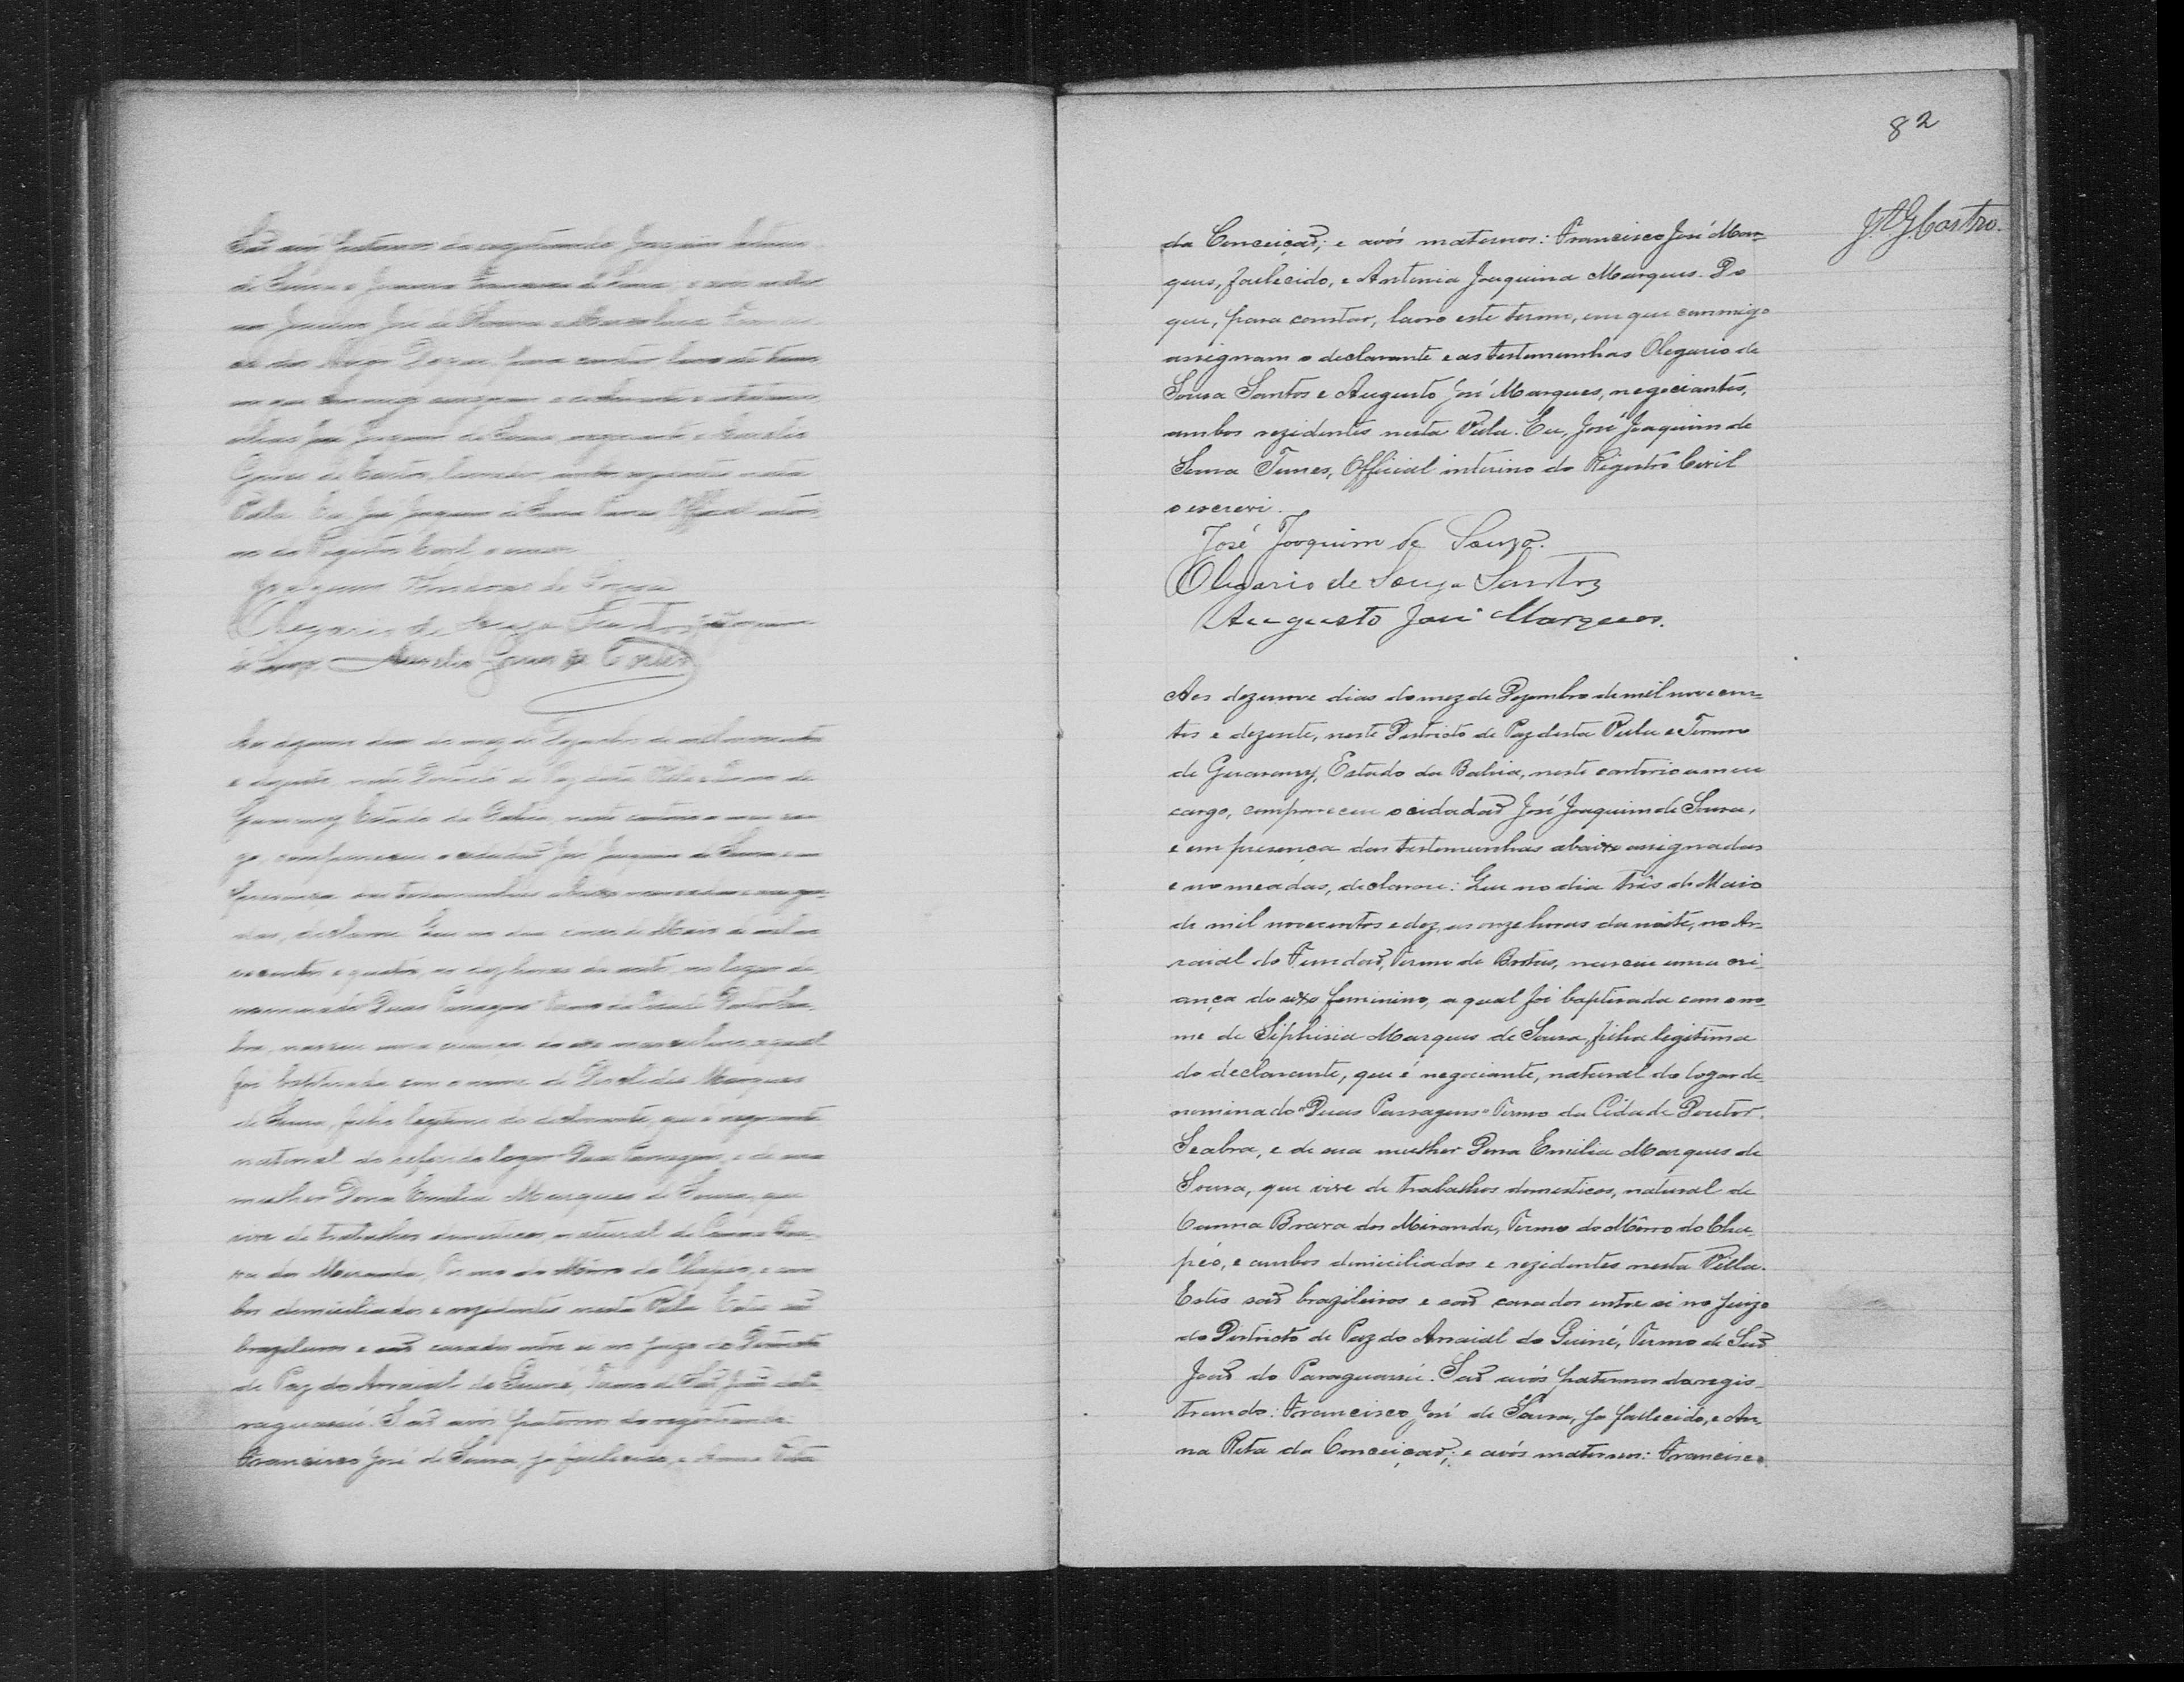 São avós paternos
de Sousa e
José de
Do que, para constar, lavro este termo
em que commigo assignam o declarante e as testemu-
nhas José Joaquim de Sousa, negociante e Aurelio
Gomes de Castro, lavrador, ambos rezidentes nesta
Villa. Eu, José Joaquim de Sousa Tunes, Official interi-
no do Registro Civil o escrevi
de Souza
Olegario de Souza Santos
Aurelio Gomes de Castro
Aos dezenove dias do mez de Dezembro de mil novecentos
e dezesete, neste Districto de Paz desta Villa e Termo de
Guarany, Estado da Bahia, neste cartorio a meu car-
go, compareceu o cidadaõ José Joaquim de Sousa e em
presença das testemunhas abaixo nomeadas e assigna-
das, declarou: Que no dia de Maio de mil no-
vecentos e quatro, as dez horas da noite, no logar de-
nominado Duas Passagens Termo da Cidade Doutor Sea-
bra, nasceu uma criança do sexo masculino, a qual
foi baptisada com o nome de Marques
de Sousa, filho legitimo do declarante, que é negociante
natural do referido logar Duas Passagens, e de sua
mulher Dona Emilia Marques de Sousa, que
vive de trabalhos domesticos, natural de Canna Bra-
va dos Miranda, Termo do Môrro do Chapéo, e am-
bos domiciliados e rezidentes nesta Villa. Estes saõ
brazileiros e saõ casados entre si no Juizo do Districto
de Paz do Arraial do Guiné, Termo de Saõ Joaõ do Pa-
raguassú. Saõ avós paternos do registrando:
Francisco José de Sousa, ja fallecido, e Anna Rita
82
J. A. G. Castro.
da Conceiçaõ; e avós maternos: Francisco José Mar-
ques, fallecido, e Antonia Joaquina Marques. Do
que, para constar, lavro este termo, em que commigo
assignam o declarante e as testemunhas Olegario de
Sousa Santos e Augusto José Marques, negociantes,
ambos rezidentes nesta Villa. Eu, José Joaquim de
Sousa Tunes, Official interino do Registro Civil
o escrevi.
José Joaquim de Souza.
Olegario de Souza Santos
Augusto José Marques.
Aos dezenove dias do mez de Dezembro de mil novecen-
tos e dezesete, neste Districto de Paz desta Villa e Termo
de Guarany, Estado da Bahia, neste cartorio a meu
cargo, compareceu o cidadaõ José Joaquim de Sousa,
e em presença das testemunhas abaixo assignadas
e nomeadas, declarou: Que no dia três de Maio
de mil novecentos e dez, as onze horas da noite, no Ar-
raial do Fundaõ, Termo de Brotas, nasceu uma cri-
ança do sexo feminino, a qual foi baptisada com o no-
me de Siphisia Marques de Sousa, filha legitima
do declarante, que é negociante, natural do logar de-
nominado "Duas Passagens" Termo da Cidade Doutor
Seabra, e de sua mulher Dona Emilia Marques de
Sousa, que vive de trabalhos domesticos, natural de
Canna Brava dos Miranda, Termo do Môrro do Cha-
péo, e ambos domiciliados e rezidentes nesta Villa.
Estes saõ brazileiros e saõ casados entre si no Juizo
do Districto de Paz do Arraial do Guiné, Termo de Saõ
Joaõ do Paraguassú. Saõ avós paternos da regis-
trando: Francisco José de Sousa, ja fallecido, e An-
na Rita da Conceiçaõ; e avós maternos: Francisco